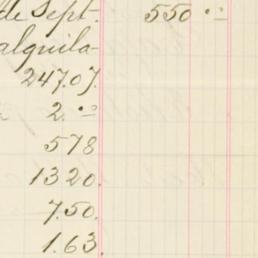 de Sept. 550 ..
alquila-
247.07.
2. ..
578
1320.
7.50.
1.63.